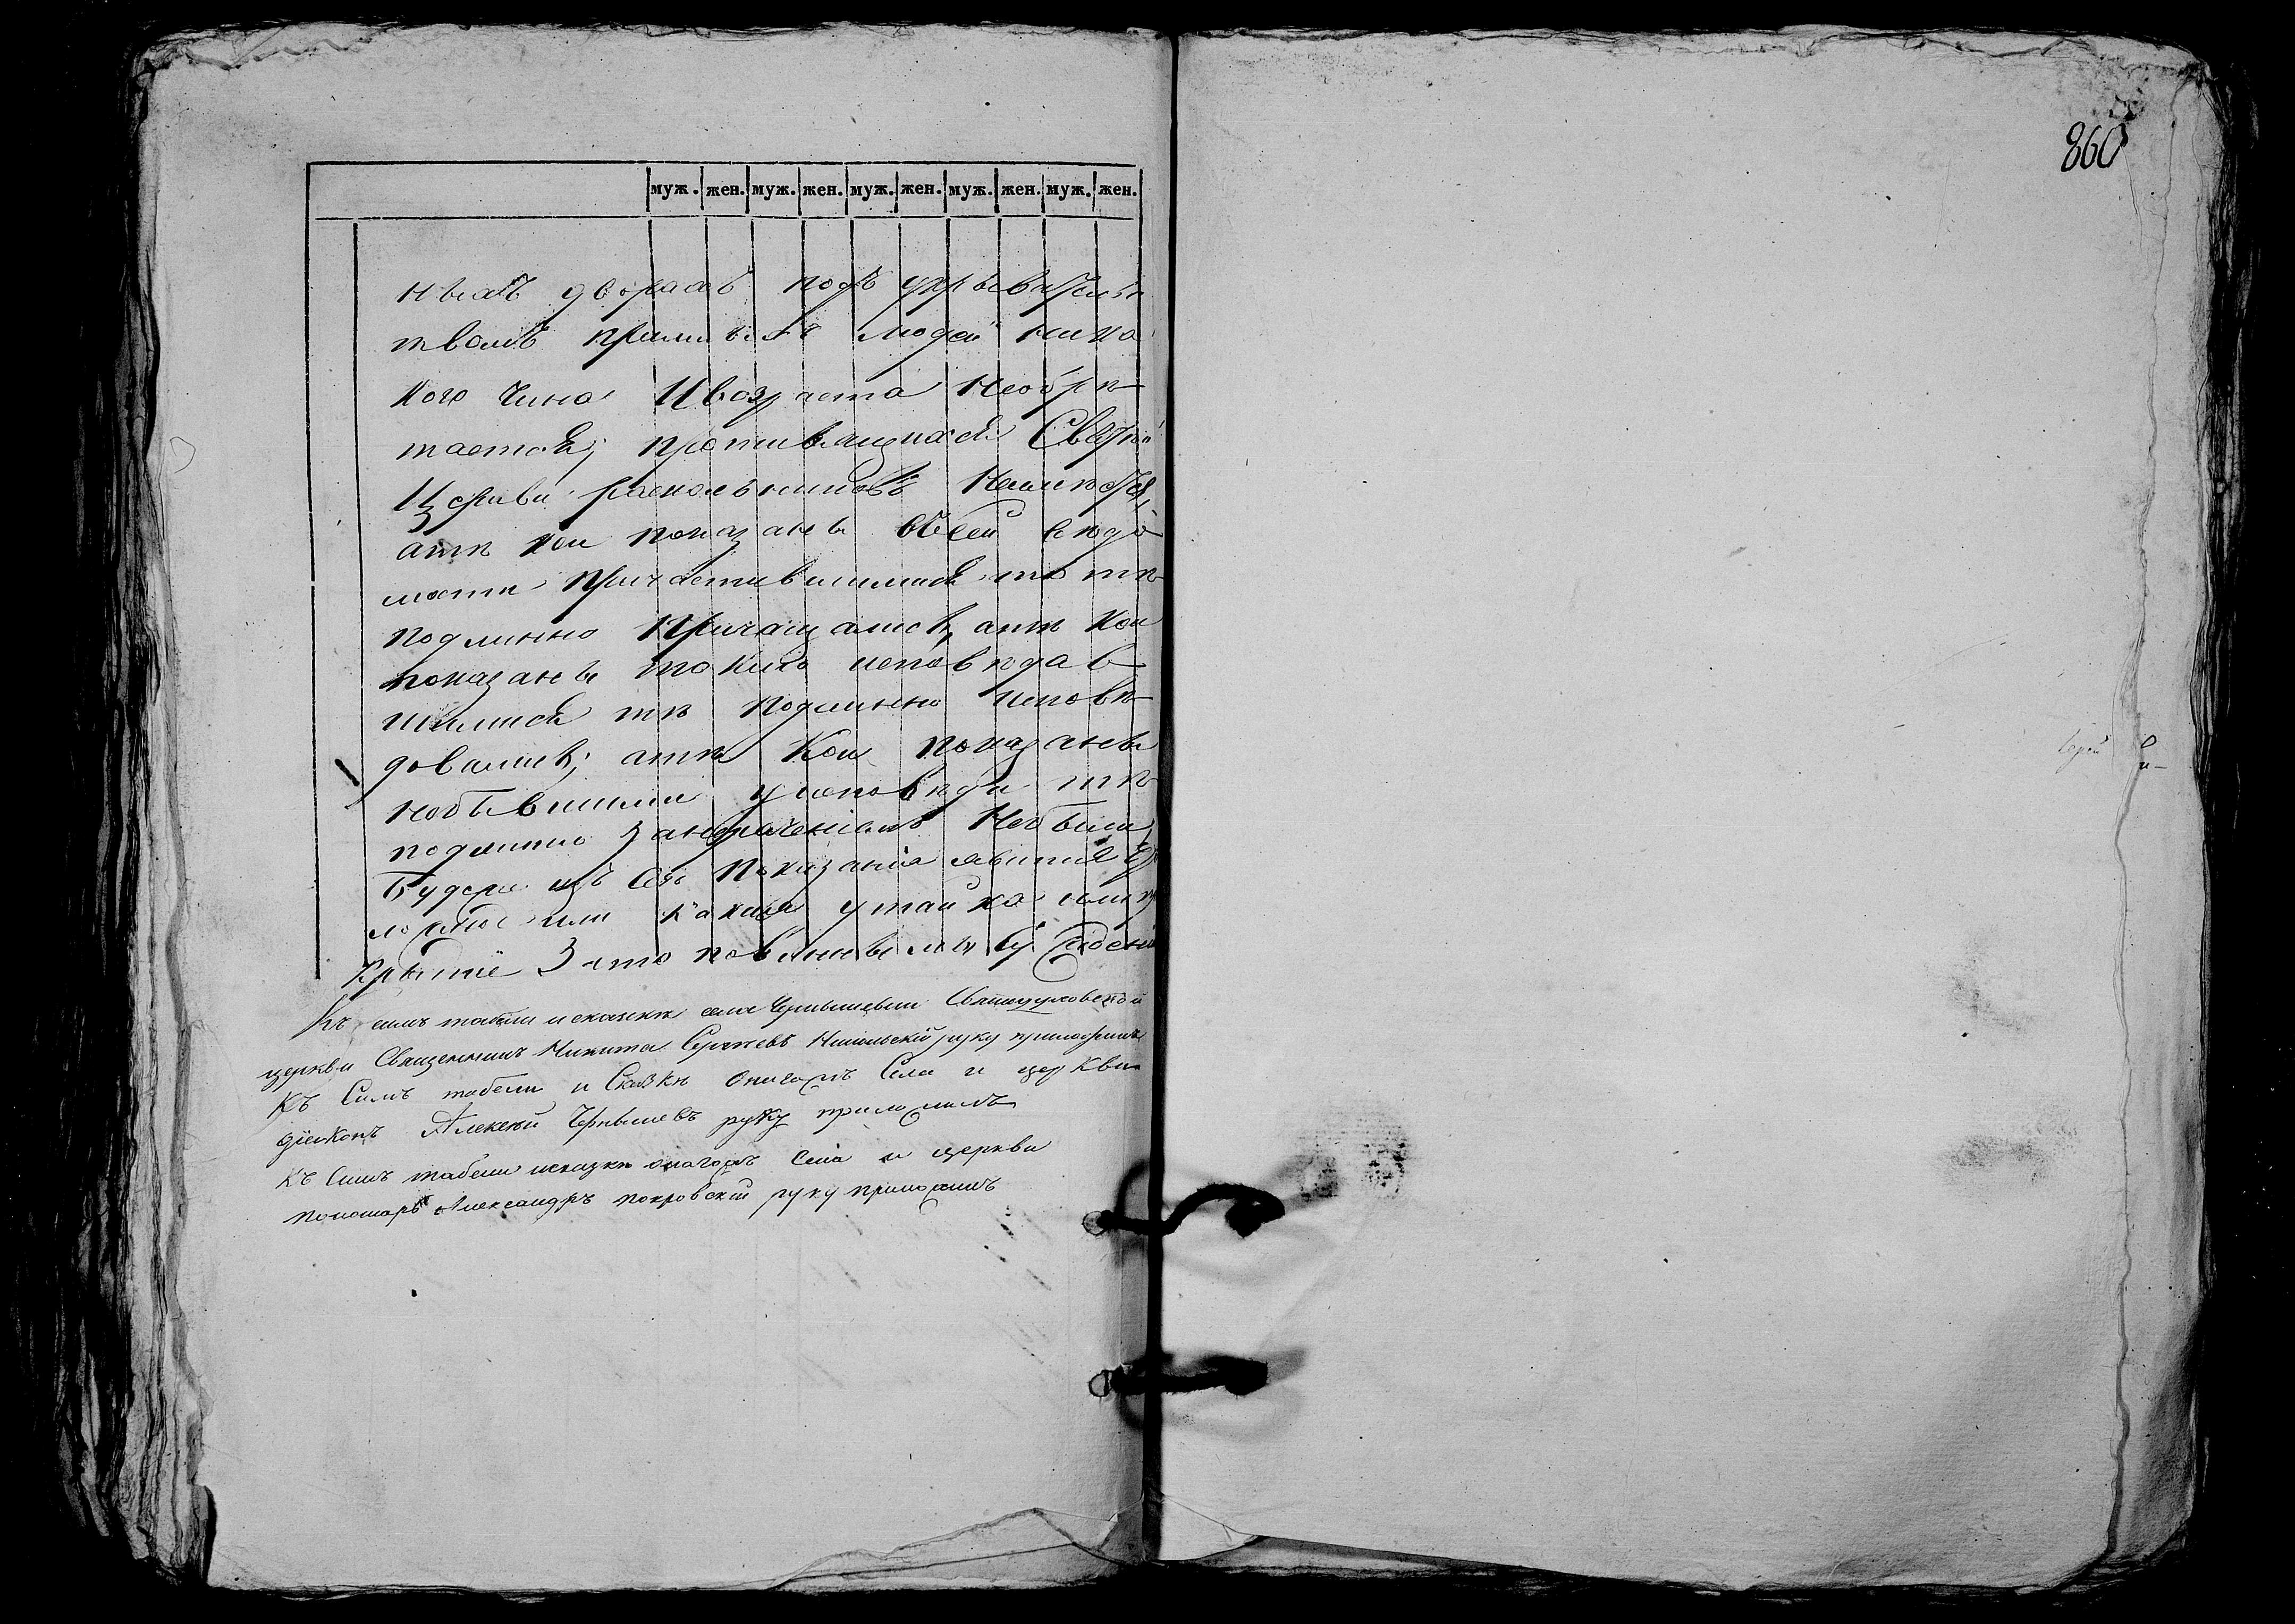 860
муж. жен. муж. жен. муж. жен. муж. жен. муж. жен.
ныхъ дворахъ подъ укрывательс
твомъ принятъ людей ника
кого чина и возраста необрѣ
тается; противящихся святой
церкви раскольниковъ
атѣ кои показаны въ сей вѣдо
мости причастившимися то тѣ
подлинно причащались, атѣ кои
показаны токмо исповѣдав
шимися тѣ подлинно исповѣ
довались; атѣ кои показаны
небывшими у исповѣди тѣ
подлинно занераченіемъ небыли,
Будеже изъ сего показанія явится
ложное или какая утайка или
крытіе Зато повинны мы
Къ симъ табели и сказкѣ села Чернышевки
церкви Священникъ Никита Сергѣевъ Никольскій руку приложилъ
Къ Симъ табели и Сказкѣ оногожъ Села и церкви
діяконъ Алексѣй Чернышевъ руку приложилъ
Къ Симъ табели исказкѣ оногожъ Села и церкви
пономарь Александръ покровскій руку приложилъ